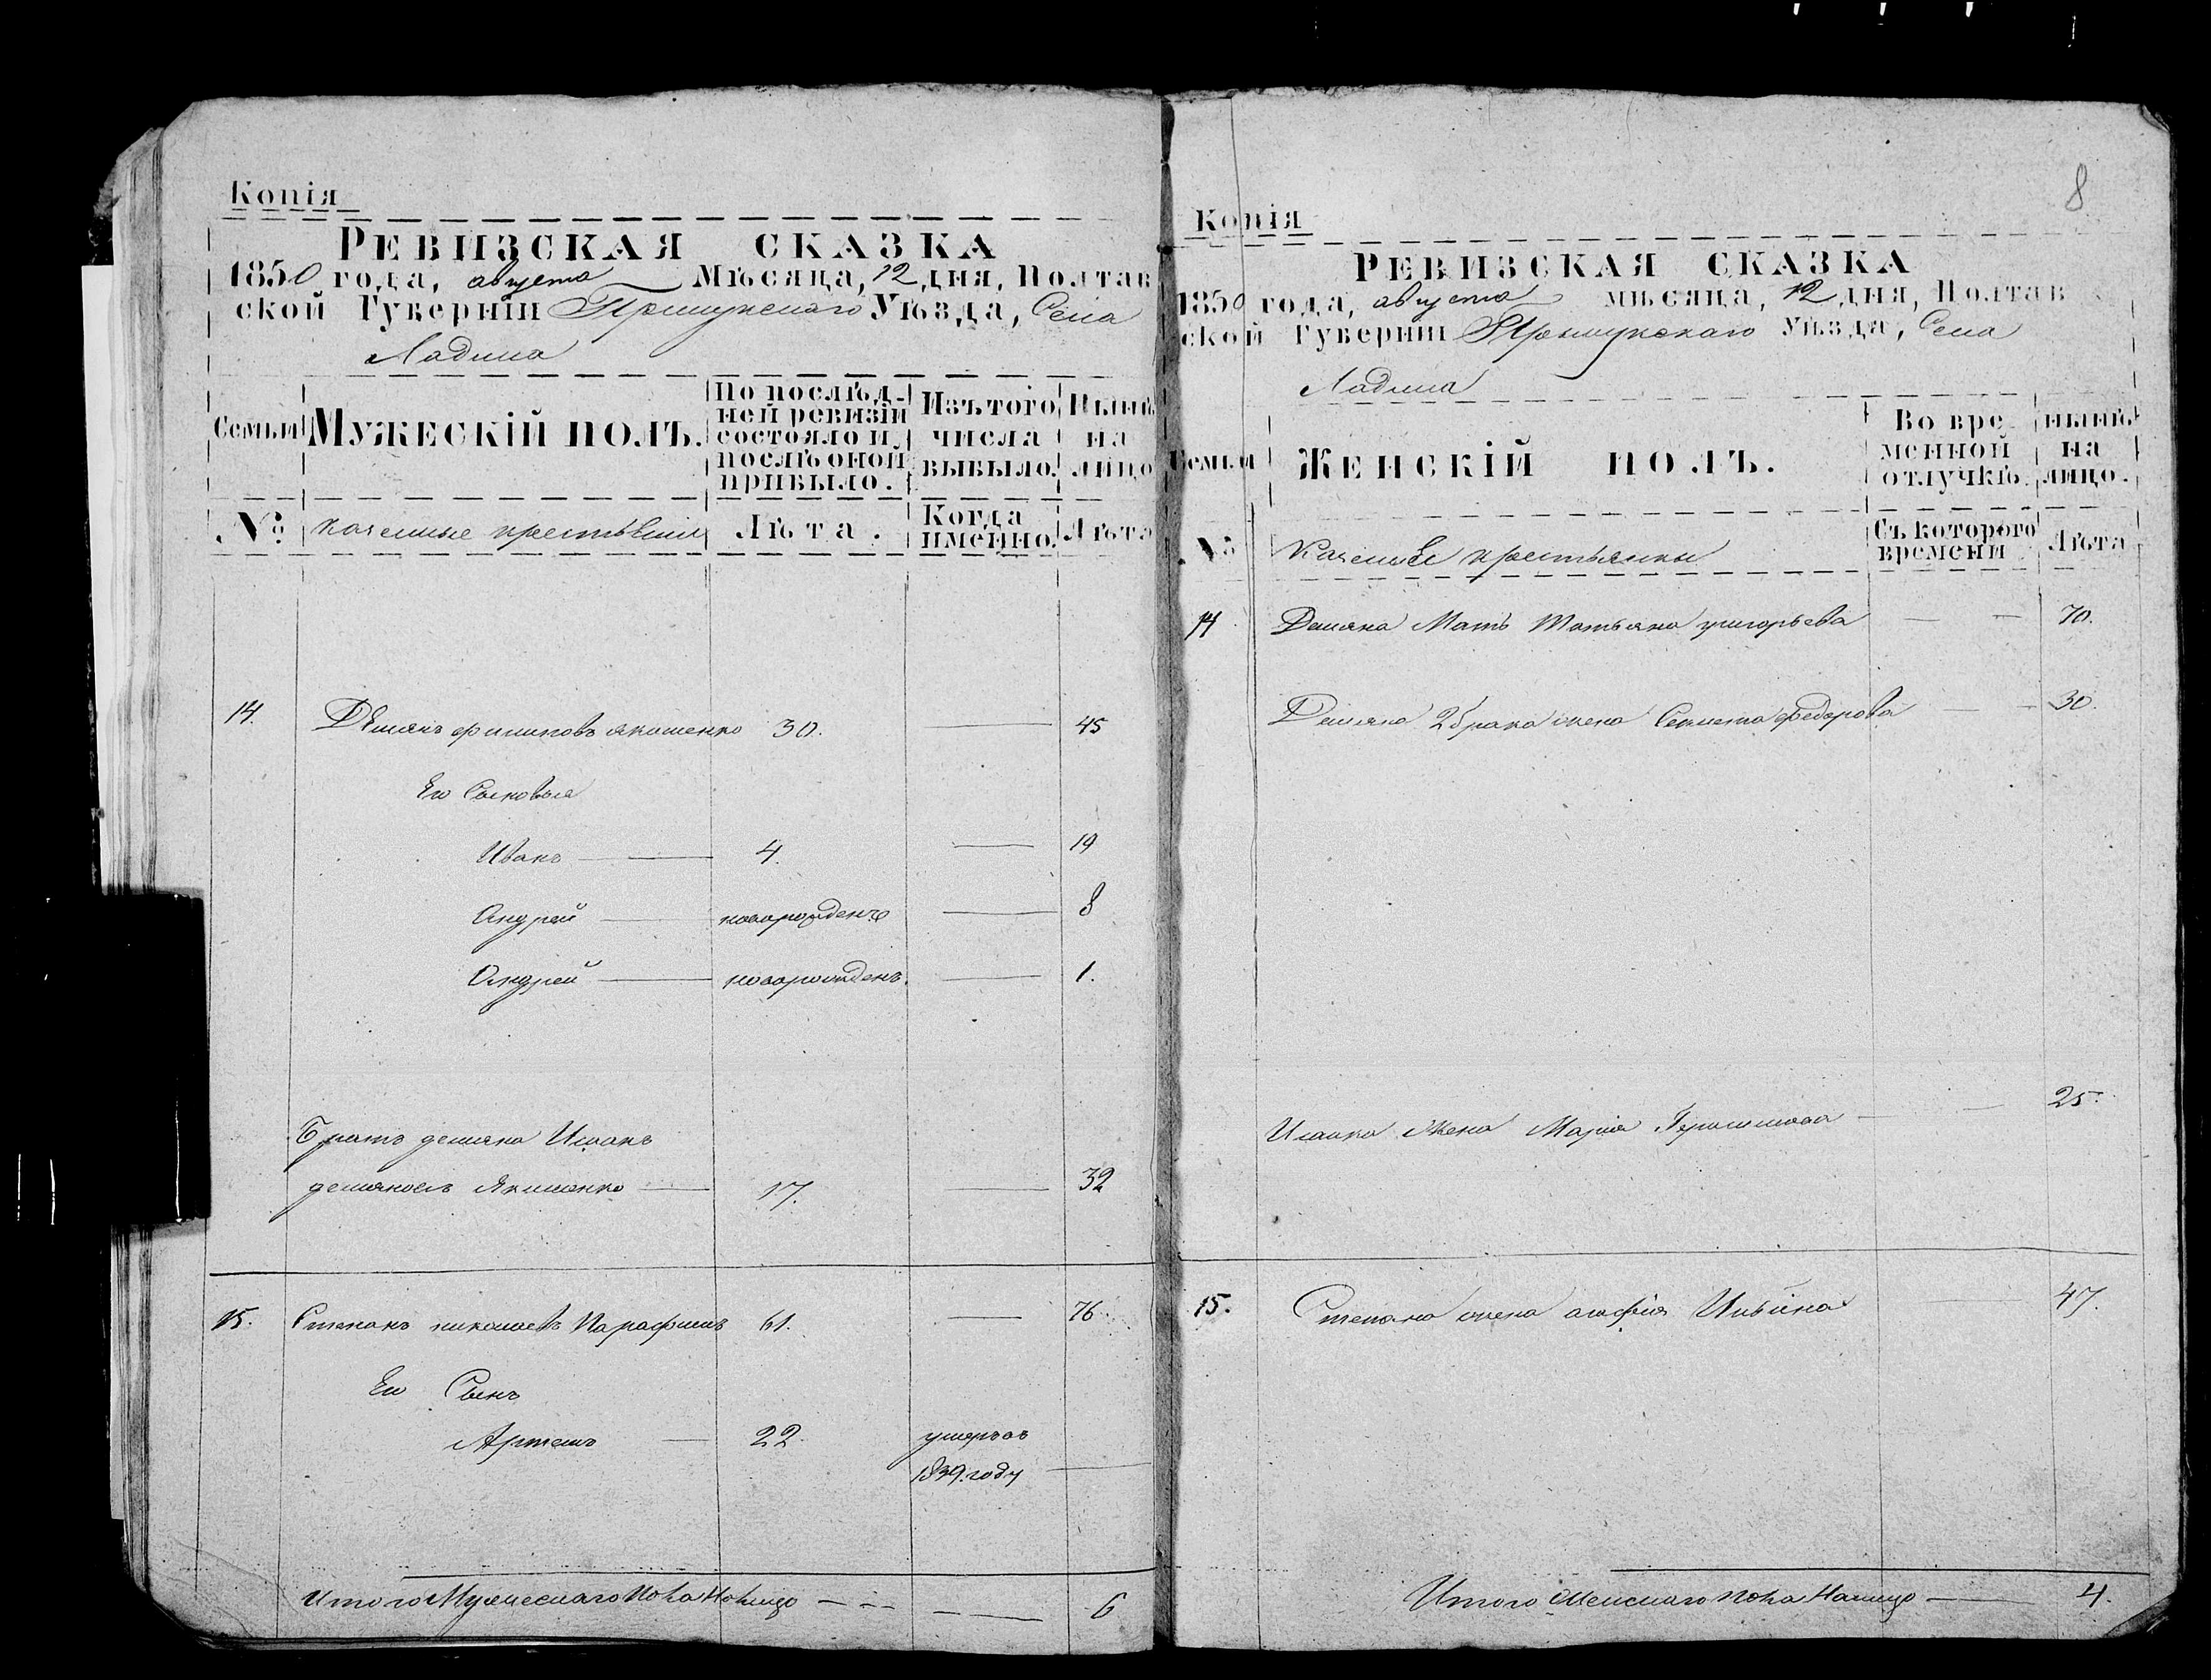 Копія
РЕВИЗСКАЯ СКАЗКА
1850 года, августа Мѣсяца, 12 дня, Полтав
ской Губерніи Прилукскаго Уѣзда, Села
Ладина
Семьи
МУЖЕСКІЙ ПОЛЪ.
По послѣд-
ней ревизіи
состояло и
послѣ оной
прибыло.
Изъ того
числа
выбыло.
Нынѣ
на
лицо
№
казенные крестьяни
Лѣта.
Когда
именно.
Лѣта
14. Демянъ филиповъ якименко 30. — 45
Его Сыновья
Иванъ — 4. — 19
Андрей — новорожденъ — 8
Андрей — новорожденъ. — 1.
Братъ демяна Исаакъ
Якименко — 17. — 32
15. Степанъ николаевъ 61. — 76
Его Сынъ
Артемъ — 22. умеръ въ
1839. году —
Итого Мужескаго Пола Налицо — 6
8
Копія
РЕВИЗСКАЯ СКАЗКА
1850 года, августа мѣсяца, 12 дня, Полтав
ской Губерніи Прилукскаго Уѣзда, Села
Ладина
Семьи
ЖЕНСКІЙ ПОЛЪ.
Во вре
менной
отлучкѣ.
нынѣ
на
лицо.
№
Казенные крестьянки
Съ которого
времени
Лѣта
14 Демяна Мать Татьяна григорьева — 70.
Демяна 2 брака жена федорова — 30.
Исаака Жена Марія — 25.
15. Степана жена агафія — 47.
Итого Женскаго Пола Налицо — 4.